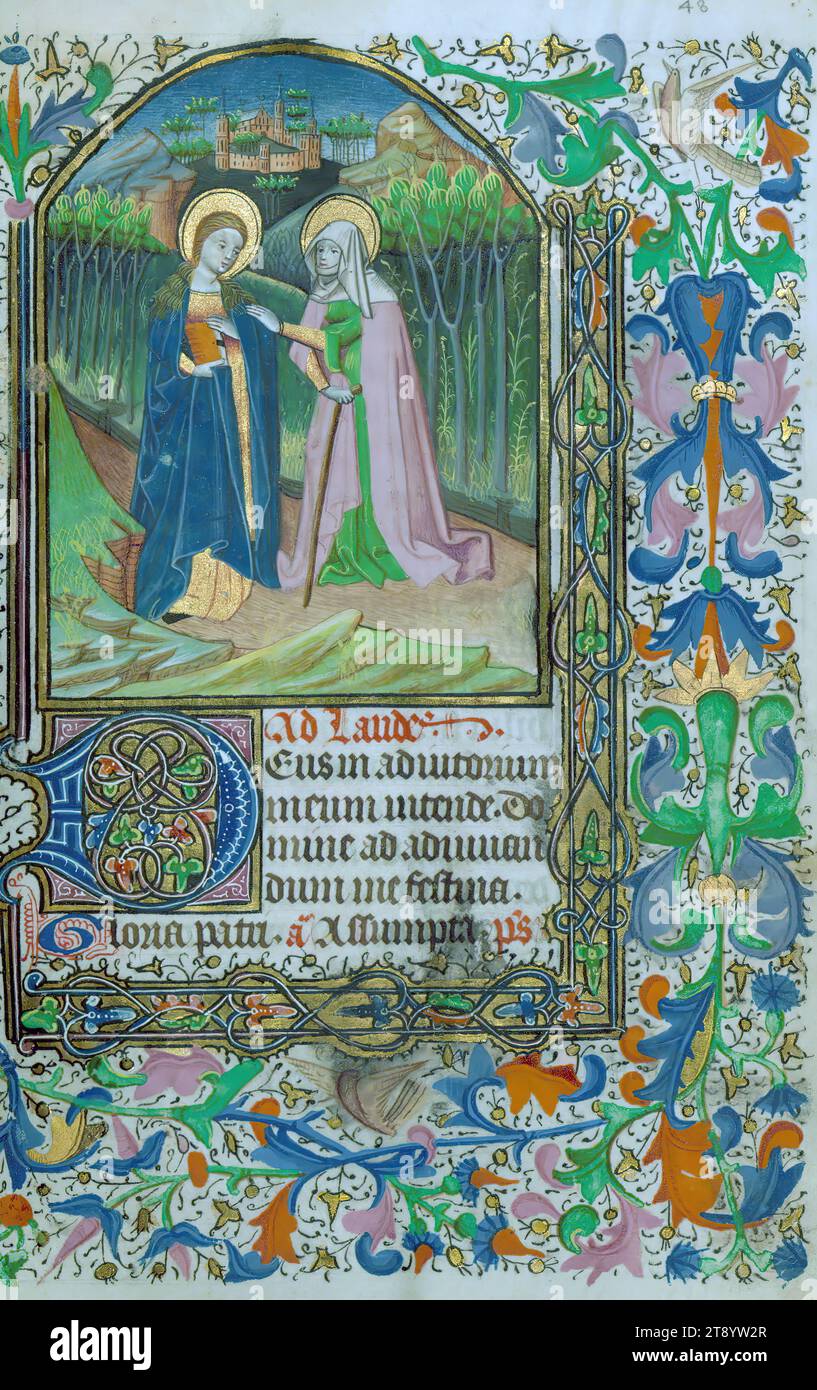 48
Ad Laude.
Deus in adiutorium
meum intende. Do
mine ad adiuuan
dum me festina.
Gloria patri. a Assumpta ps
alamy
Image ID: 2T8YW2R
www.alamy.com